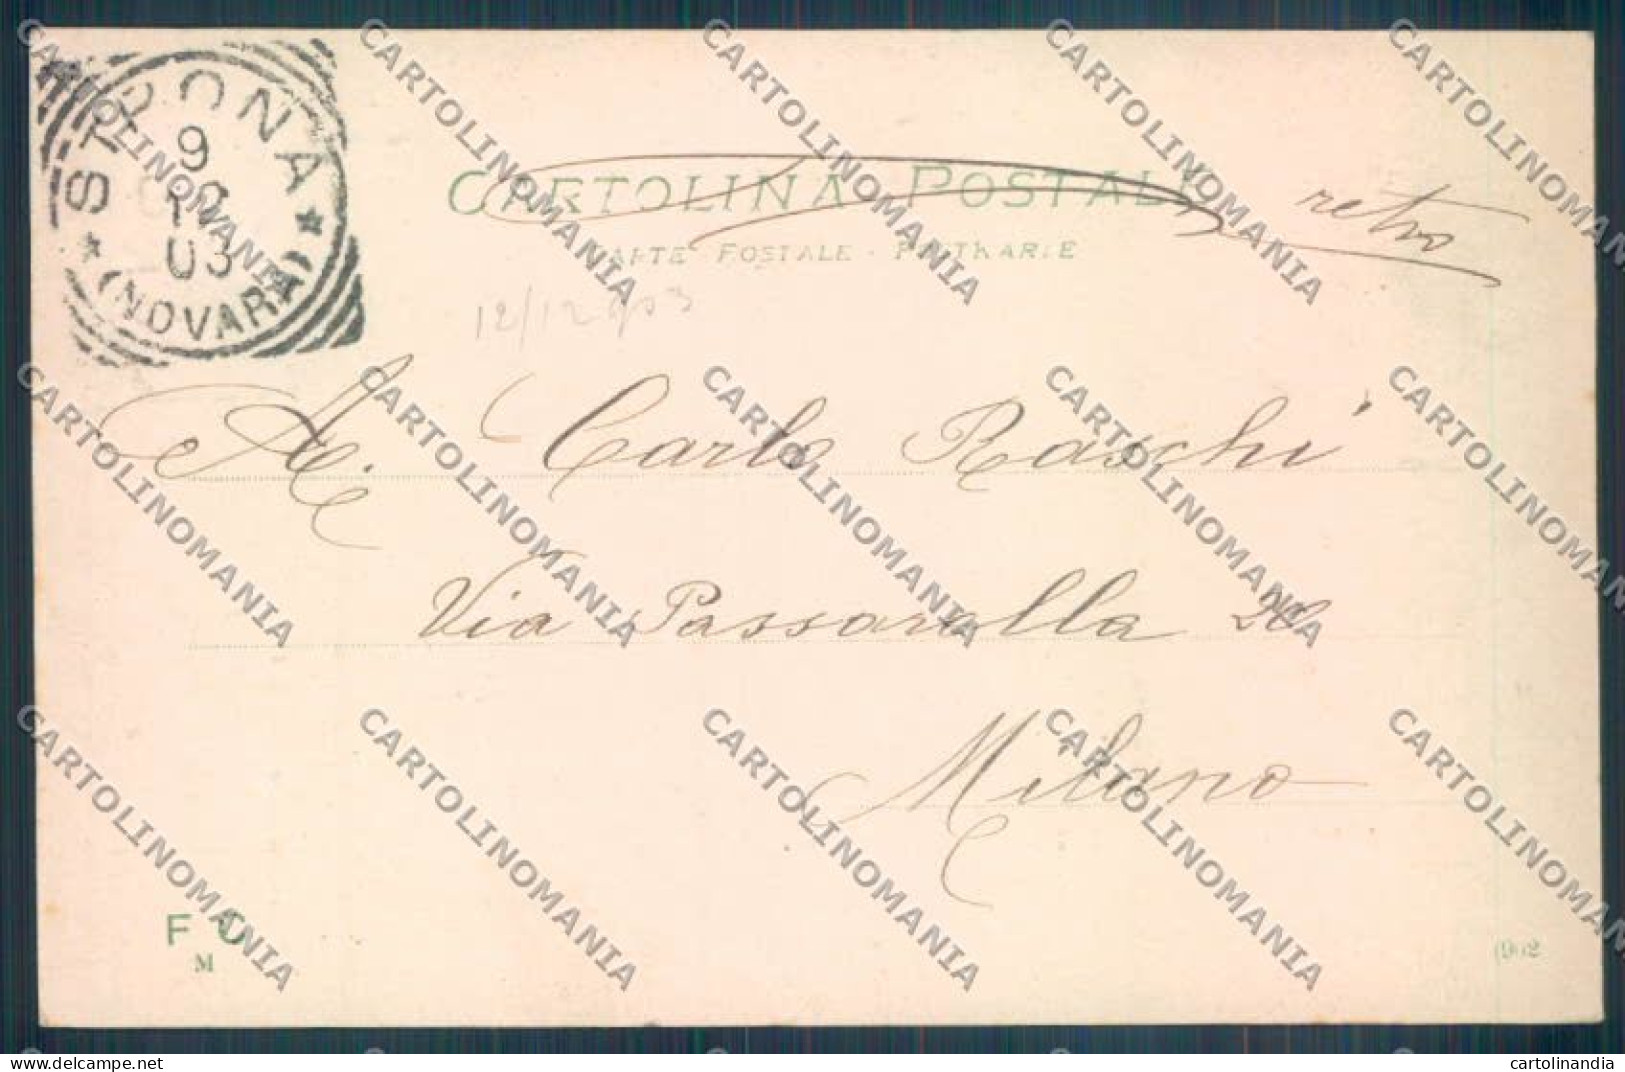 STRONA
9
12
03
(NOVARA)
CARTOLINA POSTALE
retro
CARTE POSTALE - POSTKARTE
12/12 903
A. Carlo Raschi
Via Passarella 20
Milano
F C
M
CARTOLINOMANIA
delcampe.net
cartolinandia